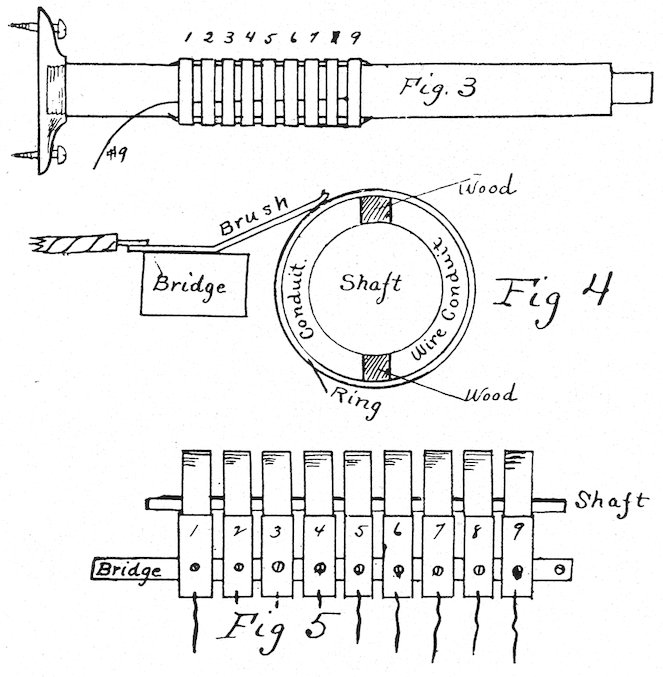 1 2 3 4 5 6 7 8 9
Fig. 3
#9
Wood
Brush
Bridge
Shaft
Conduit.
Wire Conduit
Fig 4
Ring
Wood
Shaft
1 2 3 4 5 6 7 8 9
Bridge
Fig 5